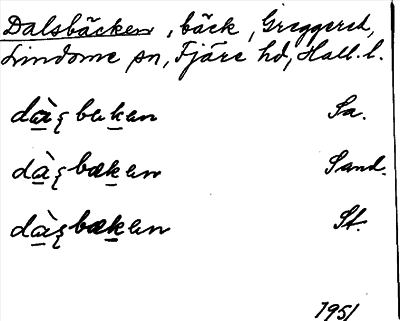 Dalsbäcken, bäck, Greggered,
Lindome sn, Fjäre hd, Hall. l.
dàʂbekan Sa.
dàʂbækan Sand.
dàʂbækan St.
1951